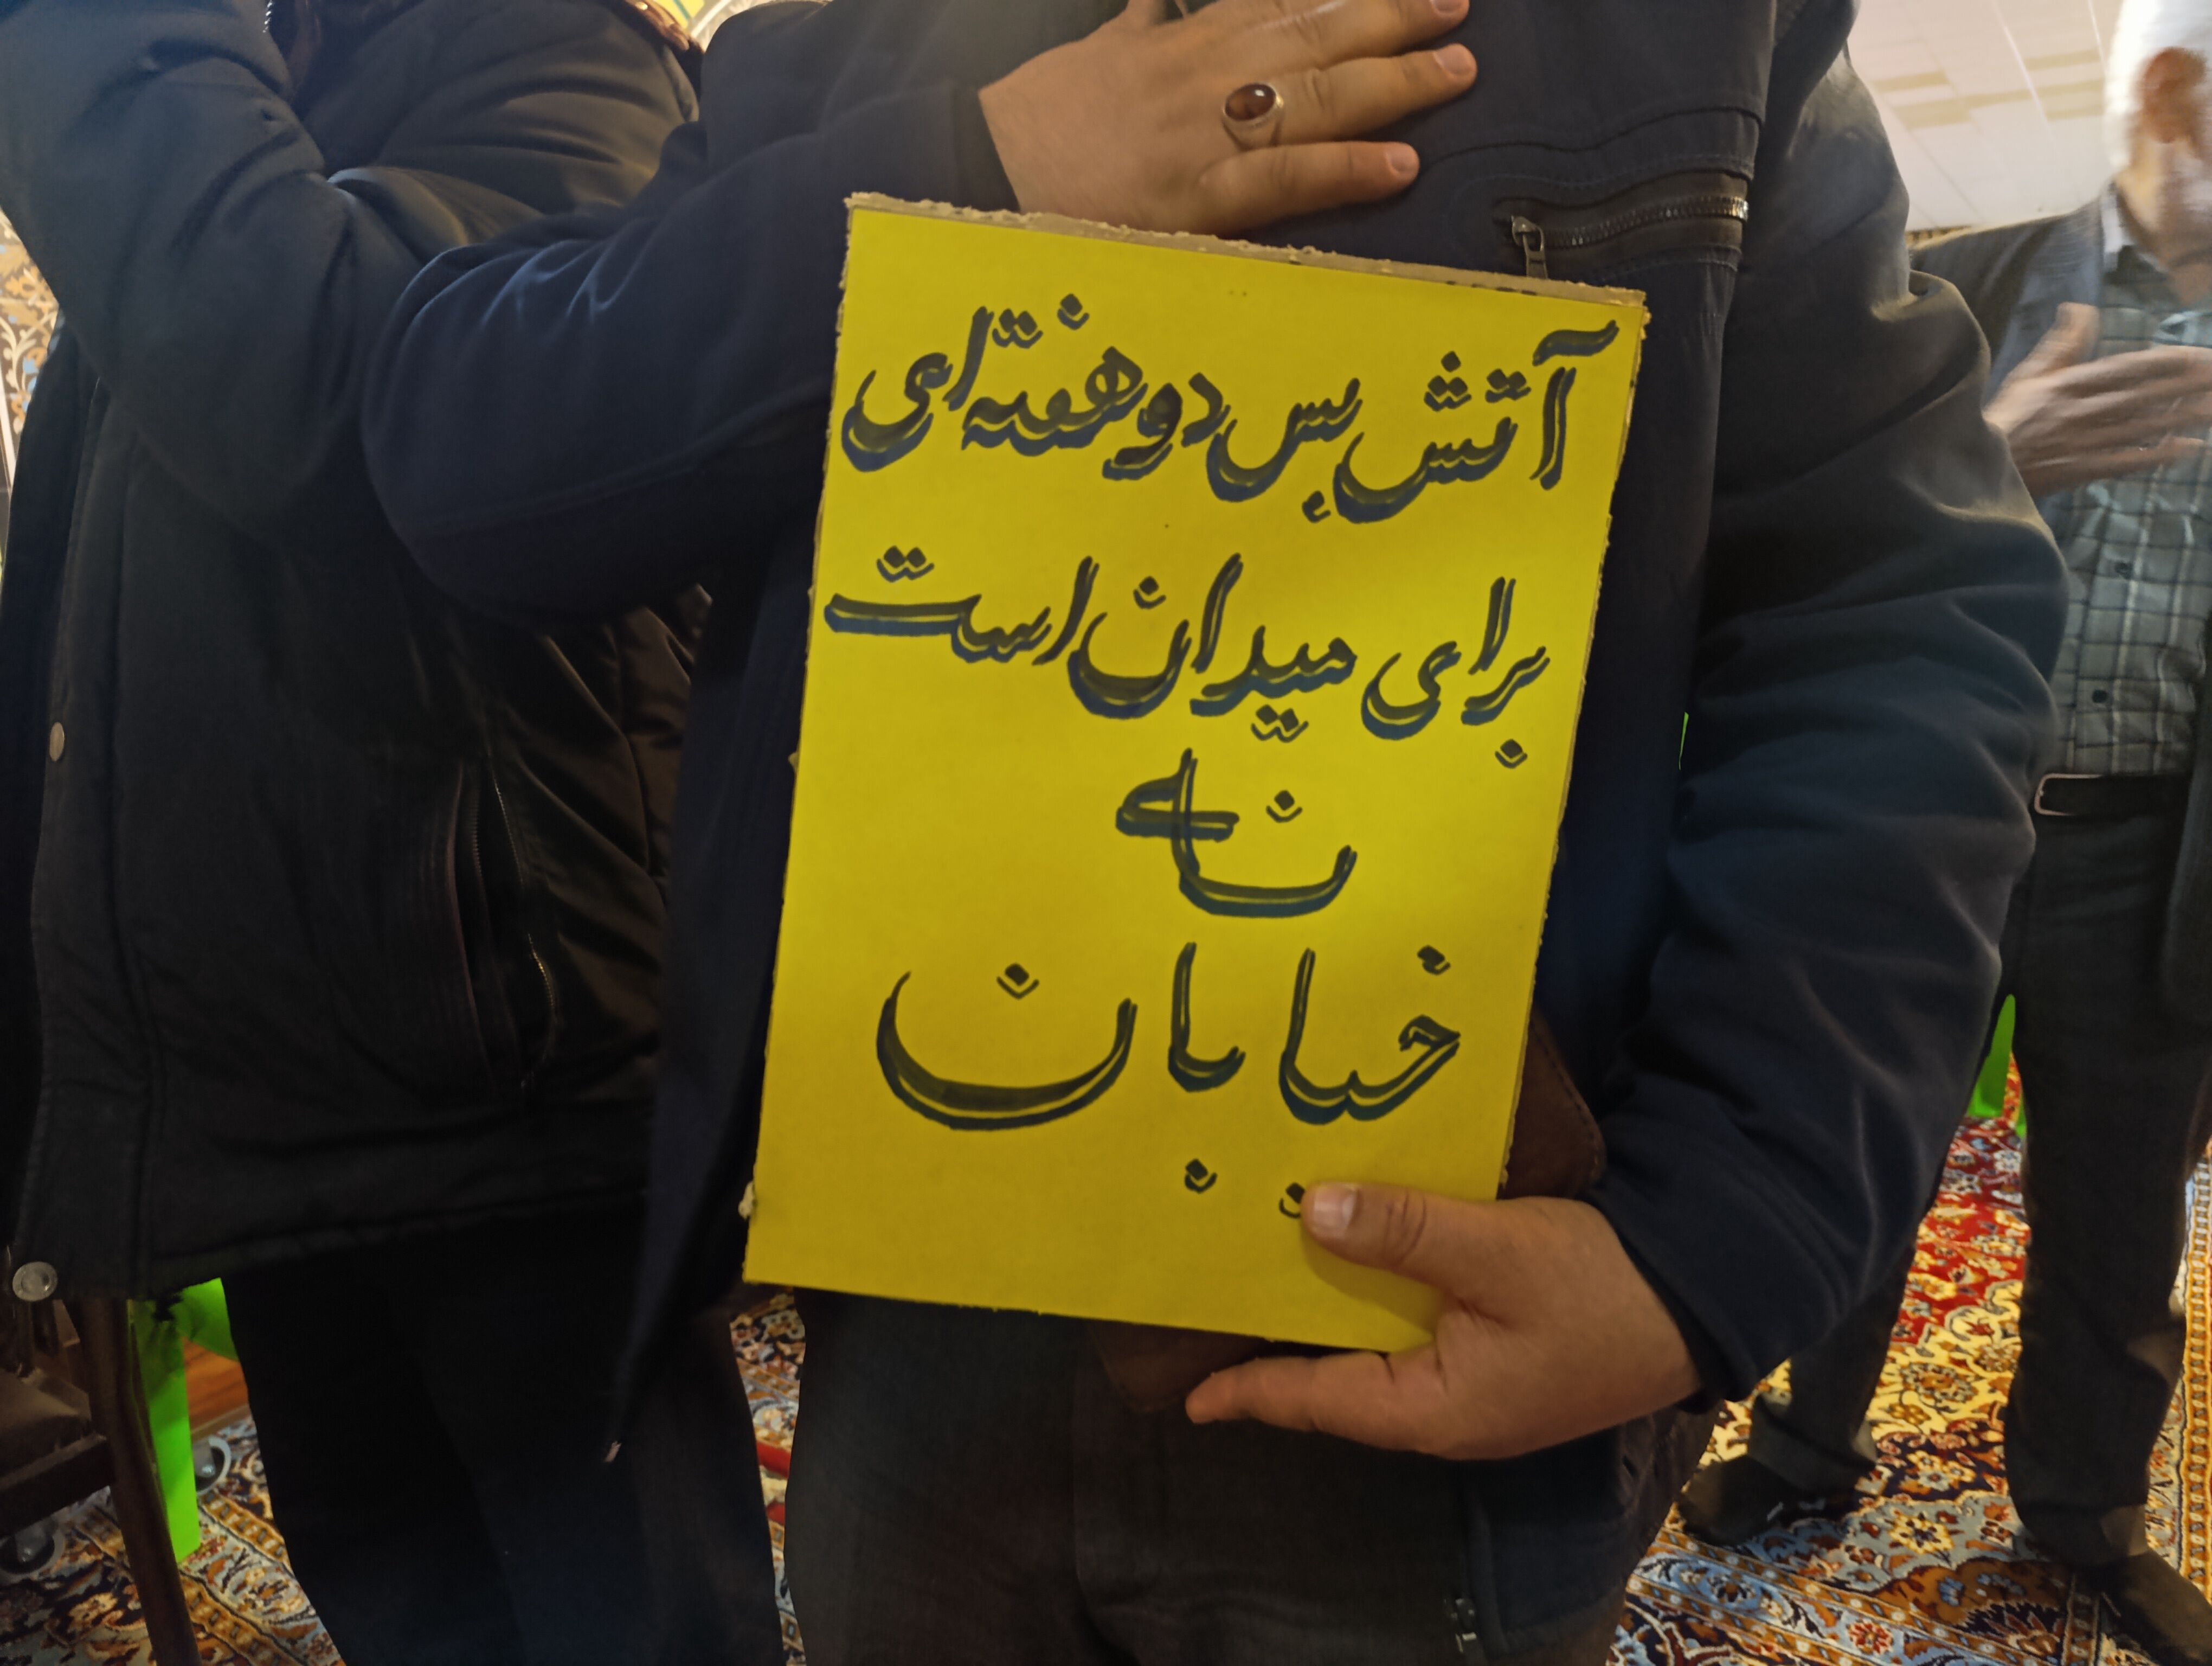 آتش بس دو هفته ای
برای میدان است
نه
خیابان